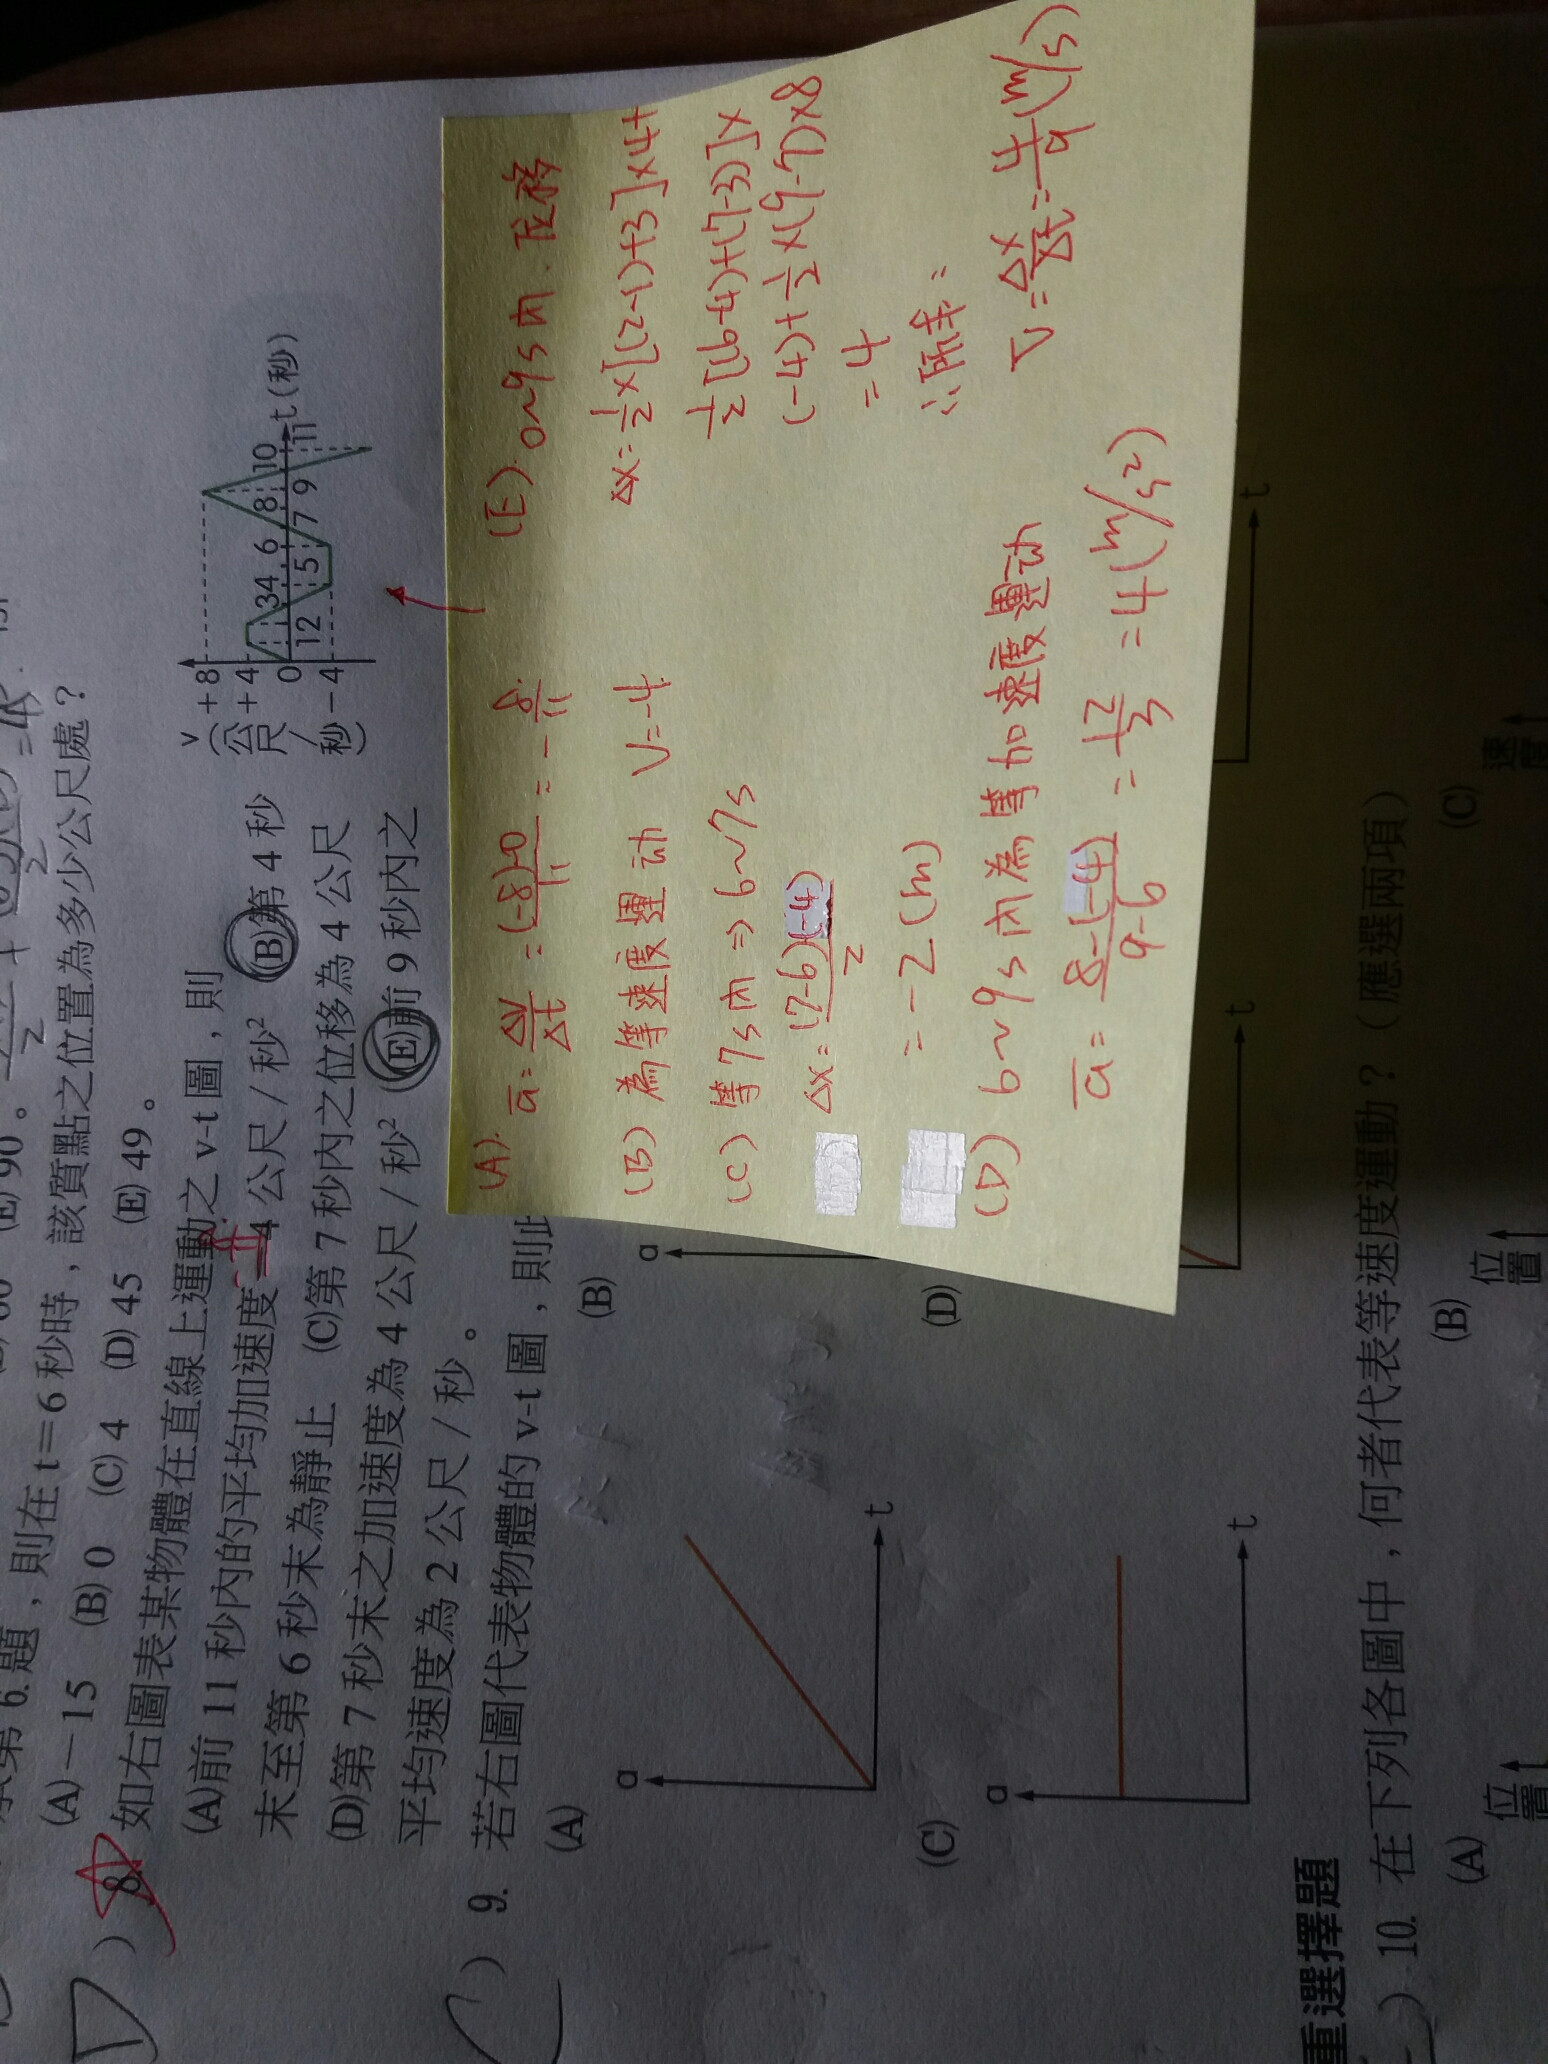 則在 t＝6 秒時，該質點之位置為多少公尺處？
(A)－15 (B) 0 (C) 4 (D) 45 (E) 49。
8. 如右圖表某物體在直線上運動之 v-t 圖，則
(A)前 11 秒內的平均加速度 4 公尺／秒² (B)第 4 秒
末至第 6 秒末為靜止 (C)第 7 秒內之位移為 4 公尺
(D)第 7 秒末之加速度為 4 公尺／秒² (E)前 9 秒內之
平均速度為 2 公尺／秒。
v
(公尺／秒)
+8
+4
0
−4
12 34 5 6 7 8 9 10 11 t(秒)
9. 若右圖代表物體的 v-t 圖，則
(A)
a
t
(B)
a
(C)
a
t
(D)
t
(A). ā = Δv/Δt = (-8)-0/11 = - 8/11
(B) 為等速度運动 V=-4.
(C) 等7s內 ⇒ 6~7s
Δx = (7-6)(-4)/2
= -2 (m)
(D) 6~9s內為等加速度運动
ā = 8-(-4)/9-6 = 12/3 = 4 (m/s²)
(E). 0~9s內.位移
Δx = 1/2 × [(2-1)+3]×4+
1/2 [(6-4)+(7-3)]×
(-4)+ 1/2 ×(9-7)×8
= 4
∴所求=
V̄ = Δx/Δt = 4/9 (m/s)
重選擇題
10. 在下列各圖中，何者代表等速度運動？（應選兩項）
(A)
位置
(B)
位置
(C)
速度